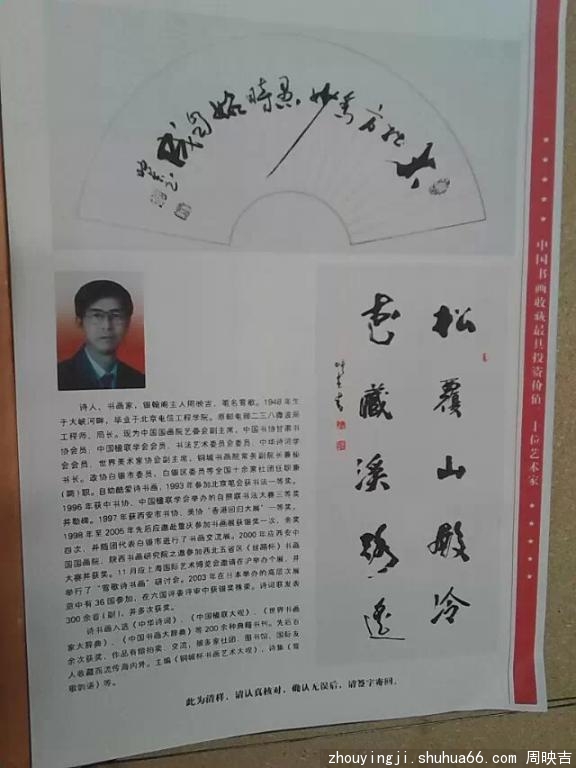 松覆山殿冷
花藏溪路遥
诗人、书画家,银翰阁主人周映吉,笔名莺歌。1948年生
于大峡河畔,毕业于北京电信工程学院。原邮电部二三八微波局
工程师、局长。现为中国国画院艺委会副主席,中国书协甘肃书
协会员,中国楹联学会会员,书法艺术委员会委员,中华诗词学
会会员,世界美术家协会副主席,铜城书画院常务副院长兼秘
书长。政协白银市委员、白银区委员等全国十余家社团任职兼
(聘)职。自幼酷爱诗书画,1993年参加北京笔会获书法一等奖。
1996年获中书协、中国楹联学会举办的自撰联书法大赛三等奖
并勒碑。1997年获西安市书协、美协“香港回归大展”一等奖。
1998年至2005年先后应邀赴重庆参加书画展获银奖一次,余奖
四次,并随团代表白银市进行了书画交流展。2000年应西安中
国国画院、陕西书画研究院之邀参加西北五省区《丝路杯》书画
大赛并获奖。11月应上海国际艺术博览会邀请在沪举办个展,并
举行了“莺歌诗书画”研讨会。2003年在日本举办的高层次展
览中有36国参加,在六国评委评审中获银奖殊荣。诗词联发表
300余首(副),并多次获奖。
诗书画入选《中华诗词》、《中国楹联大观》、《世界书画
家大辞典》、《中国书画大辞典》等200余种典籍书刊。先后百
余次获奖,作品有馈拍卖、交流,被多家社团、图书馆、国际友
人收藏而流传海内外。主编《铜城杯书画艺术大观》,诗集《莺
歌韵语》等。
此为清样,请认真核对,确认无误后,请签字寄回。
中国书画收藏最具投资价值 十位艺术家
zhouyingji.shuhua66.com 周映吉